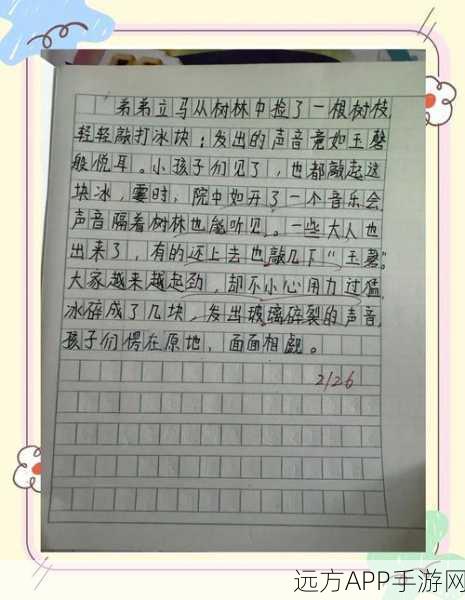 弟弟立马从树林中捡了一根树枝,
轻轻敲打冰块;发出的声音竟如玉磬
般悦耳。小孩子们见了,也都敲起这
块冰,霎时,院中如开了一个音乐会,
声音隔着树林也能听见。一些大人也
出来了,有的还上去也敲几下“玉磬”。
大家越来越起劲,却不小心用力过猛,
冰碎成了几块,发出玻璃碎裂的声音,
孩子们愣在原地,面面相觑。
2126
远方APP手游网